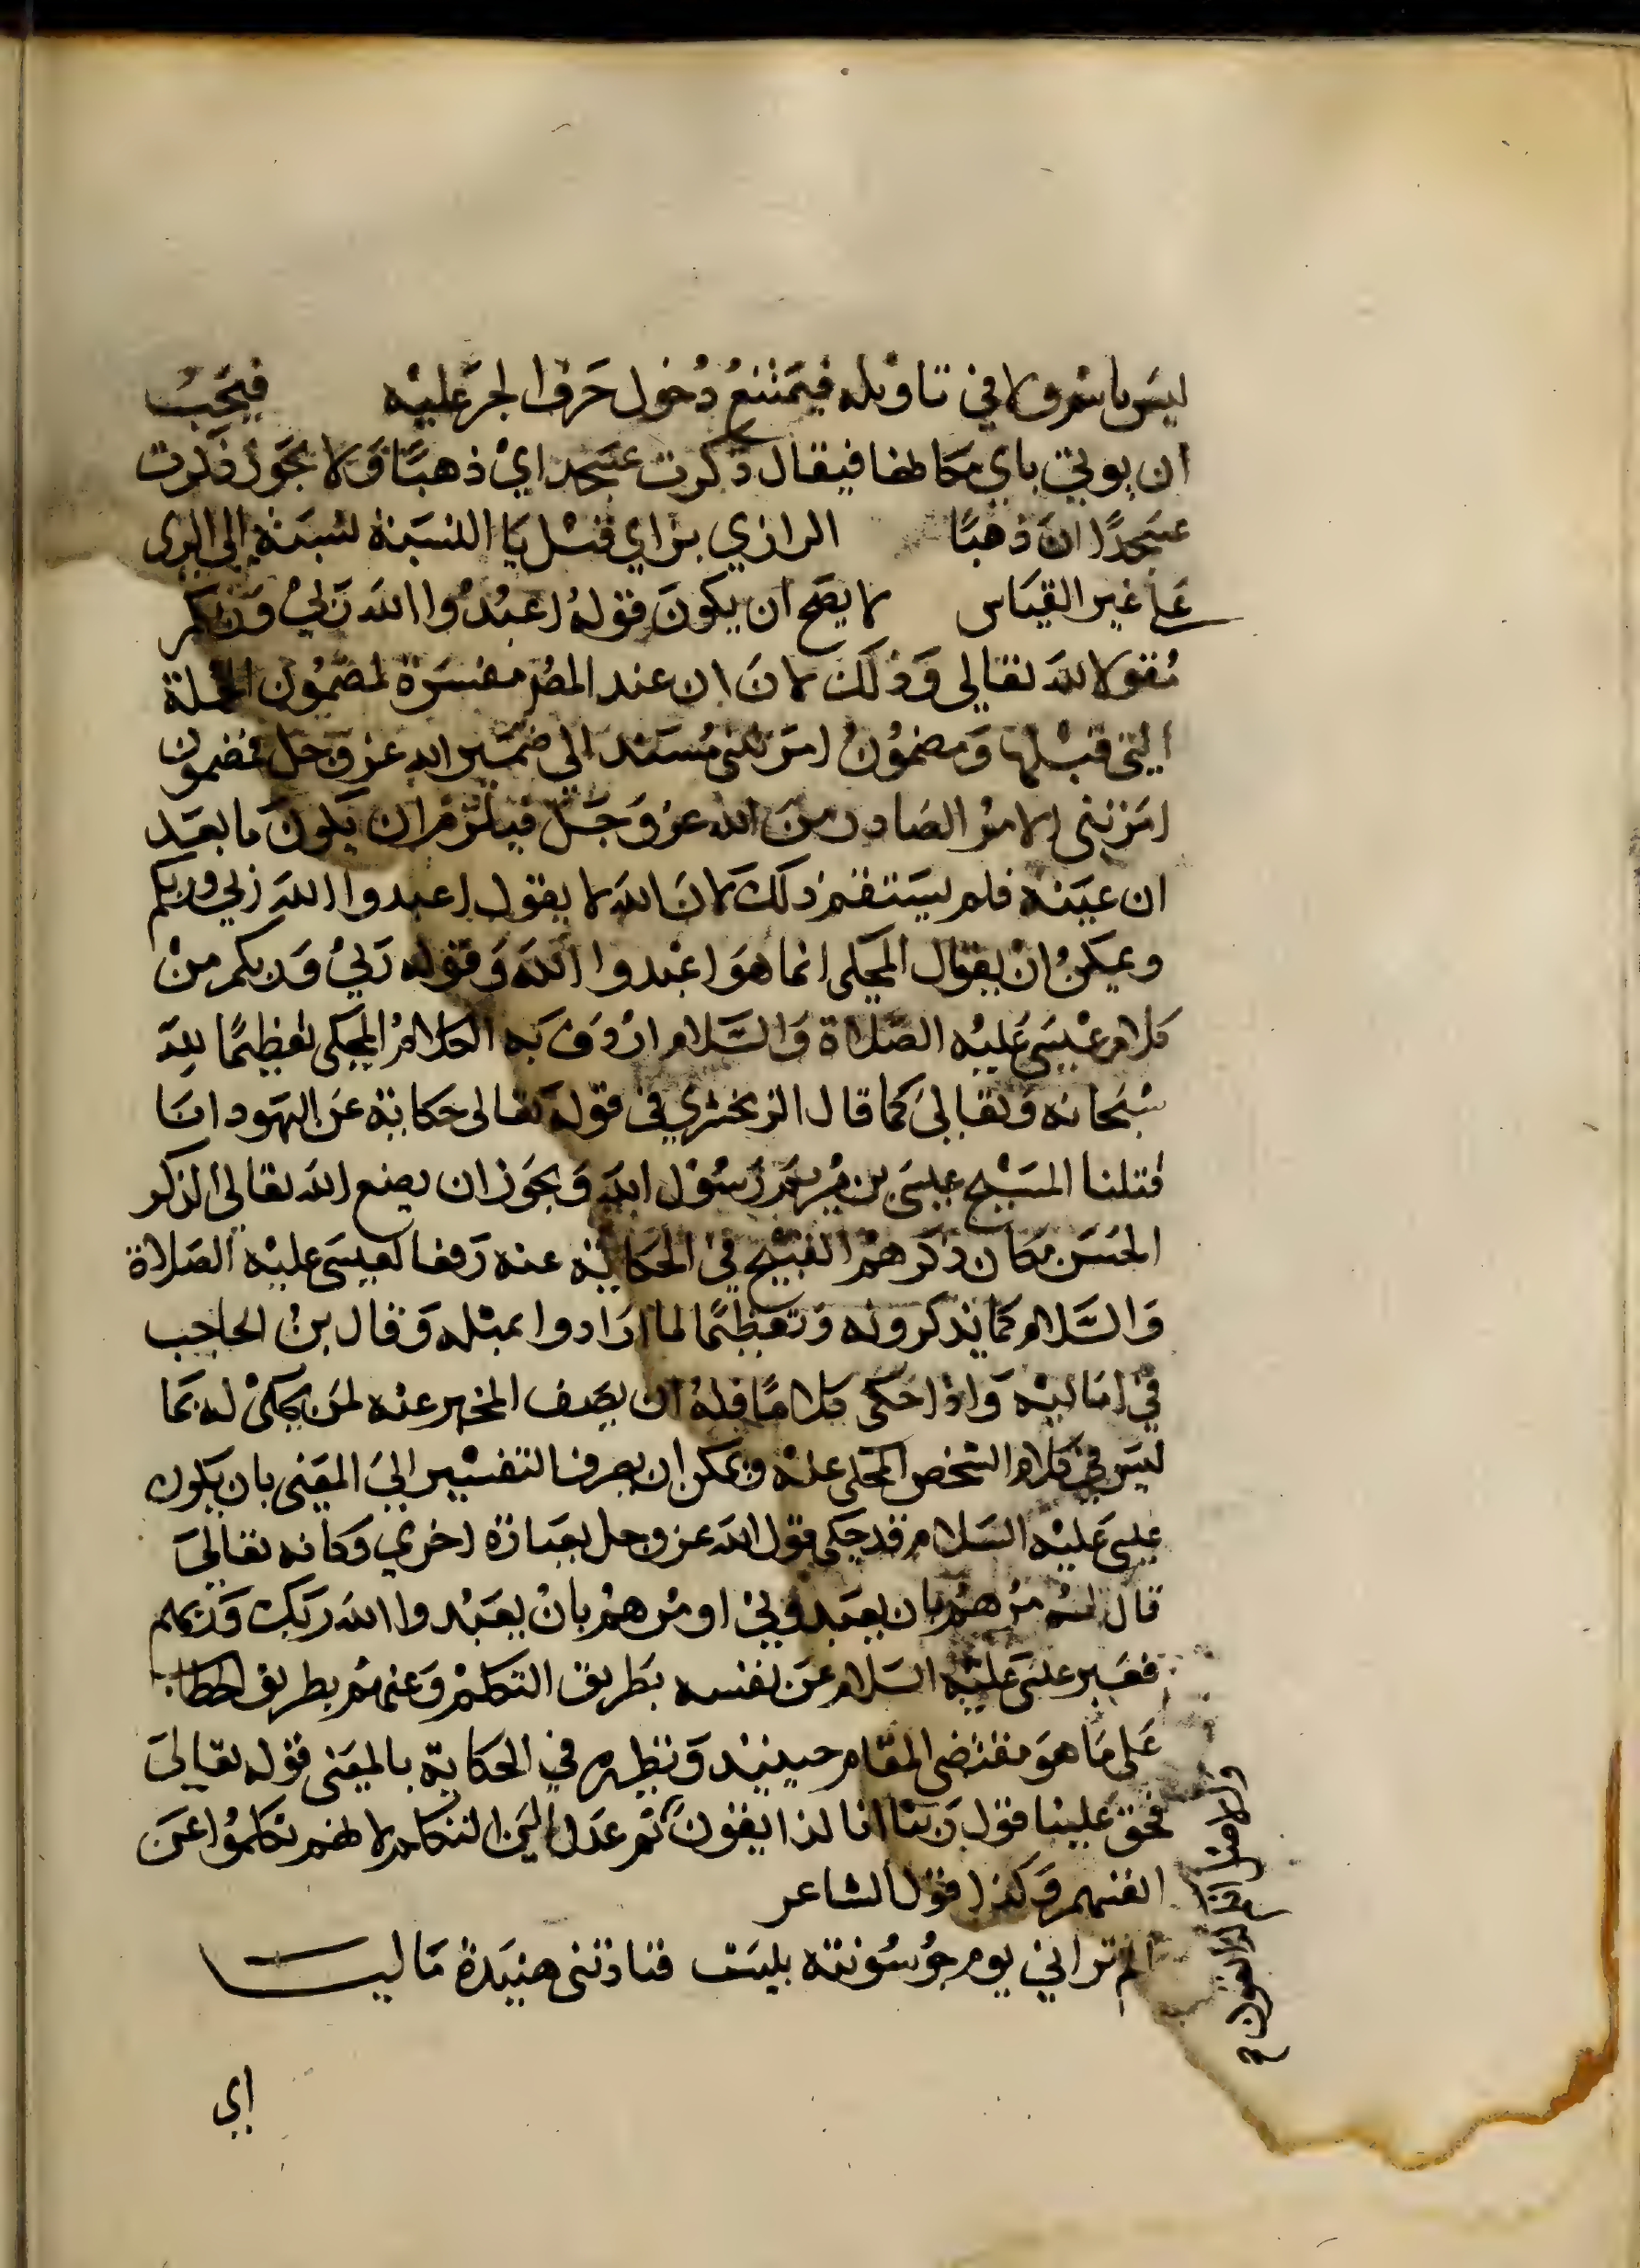 ليس باسم ولا في تاويله فيمتنع دخول حرف الجر عليه فيجب
ان يوتي باي مكانها فيقال ذكرت عسجدا اي ذهبًا ولا يجوز ذكرت
عسجدًا ان ذهبًا الرازي بزاي قبل يا النسبة نسبة الى الري
على غير القياس لا يصح ان يكون قوله اعبدوا الله ربي وربكم
مقولا لله تعالي وذلك لان ان عند المصر مفسرة لمضمون الجملة
التي قبلها ومضمون امرتني مسند الي ضمير الله عز وجل فمضمون
امرتني الامر الصادر من الله عز وجل فيلزم ان يكون ما بعد
ان عينه فلم يستقم ذلك لان الله لا يقول اعبدوا الله ربي وربكم
ويمكن ان يقال المحكي انما هو اعبدوا الله وقوله ربي وربكم من
كلام عيسى عليه الصلاة والسلام اردف به الكلام المحكي تعظيمًا لله
سبحانه وتعالى كما قال الزمخشري في قوله تعالى حكاية عن اليهود انا
قتلنا المسيح عيسى بن مريم رسول الله ويجوز ان يضع الله تعالى الذكر
الحسن مكان ذكرهم القبيح في الحكاية عنه رفعا لعيسى عليه الصلاة
والسلام كما يذكرونه وتعظيمًا لما ارادوا بمثله وقال بن الحاجب
في اماليه واذا حكى كلامًا فله ان يصف المخبر عنه لمن يحكى له بما
ليس في كلام الشخص المحكي عنه ويمكن ان يصرف التفسير الي المعنى بان يكون
عيسى عليه السلام قد حكى قول الله عز وجل بعبارة اخري وكانه تعالى
قال له مرهم بان يعبدوني او مرهم بان يعبدوا الله ربك وربهم
فعبر عيسى عليه السلام عن نفسه بطريق التكلم وعنهم بطريق الخطاب
على ما هو مقتضى المقام حينيذ ونظيره في الحكاية بالمعنى قوله تعالى
فحق علينا قول ربنا انا لذايقون ثم عدل الى التكلم لانهم تكلموا عن
انفسهم وكذا قول الشاعر
الم تر اني يوم جو سويقة بكيت فنادتني هنيدة ماليا
والاصل انكم لذايقون
اي